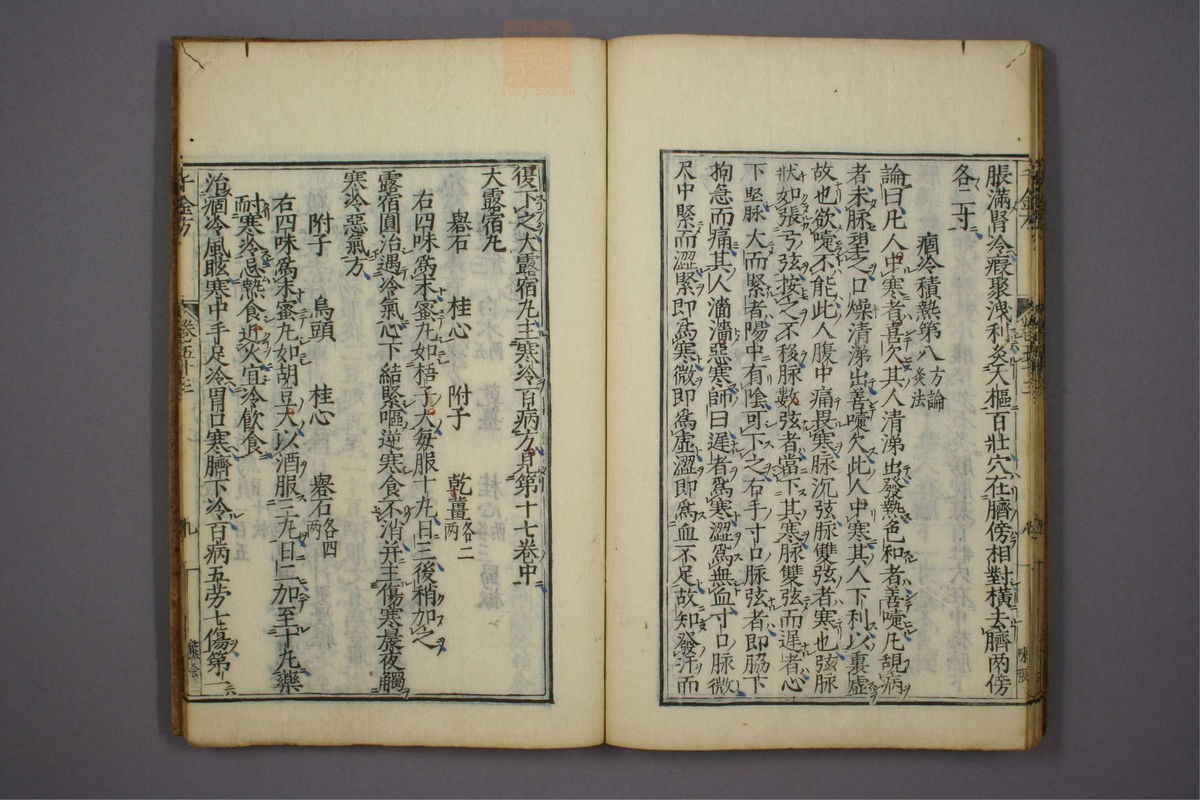 脹滿腎冷瘕聚洩利灸天樞百壯穴在臍傍相對橫去臍两傍
各二寸
痼冷積熱第八方論灸法
論曰凡人中寒者喜欠其人清涕出發熱色和者善嚏凡覘病
者未脉望之口燥清涕出善嚏欠此人中寒其人下利以裏虛
故也欲嚏不能此人腹中痛畏寒脉沉弦脉雙弦者寒也弦脉
狀如張弓弦按之不移脉數弦者當下其寒脉雙弦而遲者心
下堅脉大而緊者陽中有陰可下之右手寸口脉弦者即脇下
拘急而痛其人濇濇惡寒師曰遲者爲寒澀爲無血寸口脉微
尺中緊而澀緊即爲寒微即爲虛澀即爲血不足故知發汗而
復下之大露宿丸主寒冷百病方見第十七卷中
大露宿丸
礜石 桂心 附子 乾薑各二两
右四味爲末蜜丸如梧子大每服十丸日三後稍加之
露宿圓治遇冷氣心下結緊嘔逆寒食不消并主傷寒晨夜觸
寒冷惡氣方
附子 烏頭 桂心 礜石各四两
右四味爲末蜜丸如胡豆大以酒服三丸日三加至十丸藥
耐寒冷忌熱食近火宜冷飲食
治痼冷風眩寒中手足冷胃口寒臍下冷百病五劳七傷第一
千金方
卷五十七
九